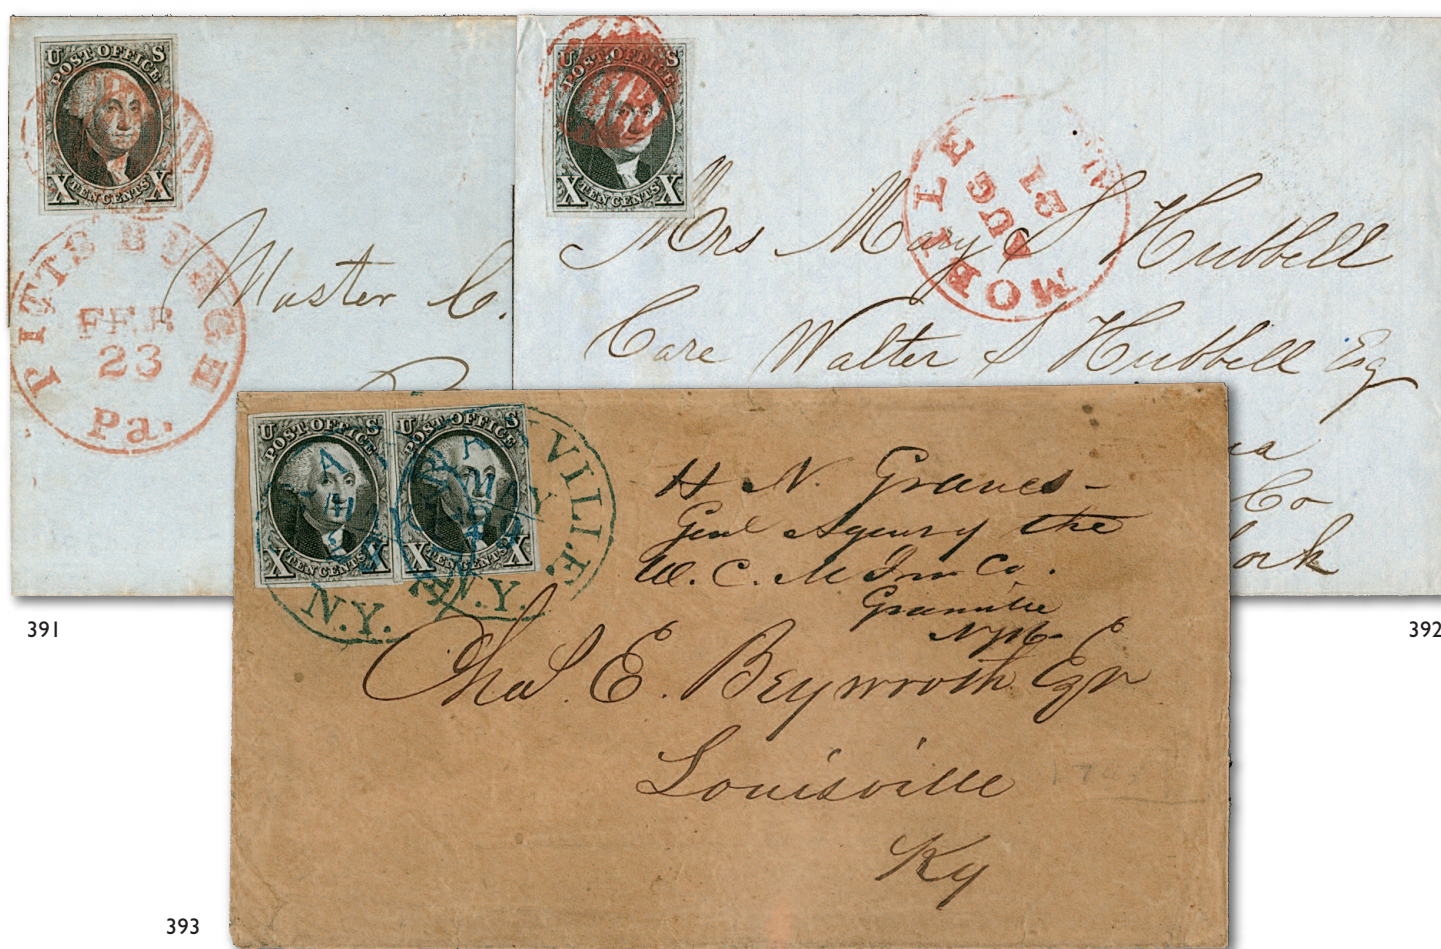 U S
POST OFFICE
X TEN CENTS X
PITTSBURGH
FEB
23
Pa.
Master C.
391
U S
POST OFFICE
X TEN CENTS X
MOBILE
AUG
21
Mrs Mary S Hubbell
Care Walter S Hubbell Esq
Co
392
U S
POST OFFICE
X TEN CENTS X
U S
POST OFFICE
X TEN CENTS X
VILLE
N.Y.
N.Y.
H N. Graves-
Genl Agency of the
W. C. M Ins Co.
Granville
Chas. E. Beynroth Esqr
Louisville
Ky
393